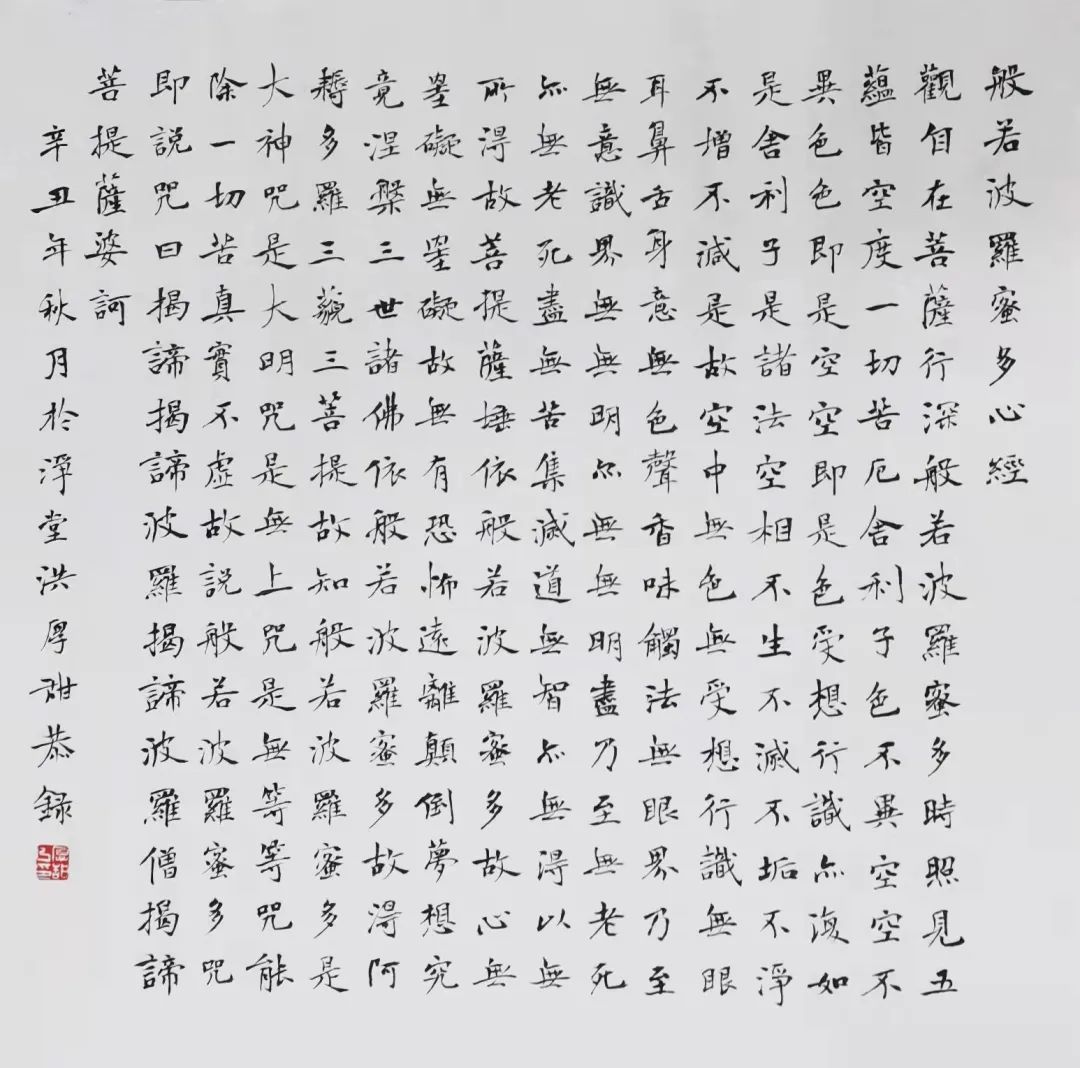 般若波羅蜜多心經
觀自在菩薩行深般若波羅蜜多時照見五
蘊皆空度一切苦厄舍利子色不異空空不
異色色即是空空即是色受想行識亦復如
是舍利子是諸法空相不生不滅不垢不淨
不增不減是故空中無色無受想行識無眼
耳鼻舌身意無色聲香味觸法無眼界乃至
無意識界無無明亦無無明盡乃至無老死
亦無老死盡無苦集滅道無智亦無得以無
所得故菩提薩埵依般若波羅蜜多故心無
罣礙無罣礙故無有恐怖遠離顛倒夢想究
竟涅槃三世諸佛依般若波羅蜜多故得阿
耨多羅三藐三菩提故知般若波羅蜜多是
大神咒是大明咒是無上咒是無等等咒能
除一切苦真實不虛故説般若波羅蜜多咒
即説咒曰揭諦揭諦波羅揭諦波羅僧揭諦
菩提薩婆訶
辛丑年秋月於淨堂洪厚甜恭録